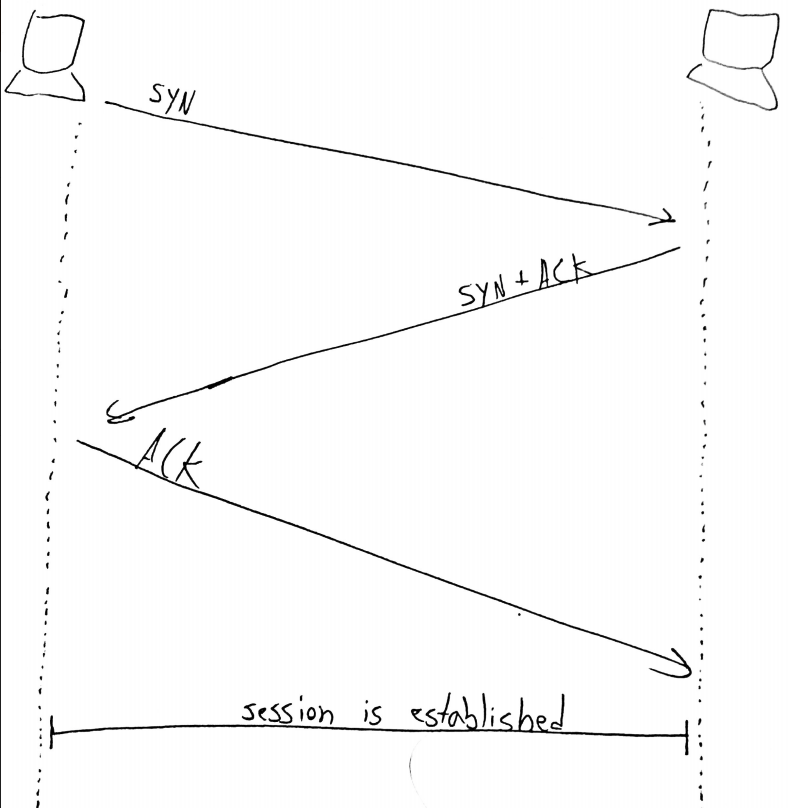 SYN
SYN + ACK
ACK
session is established